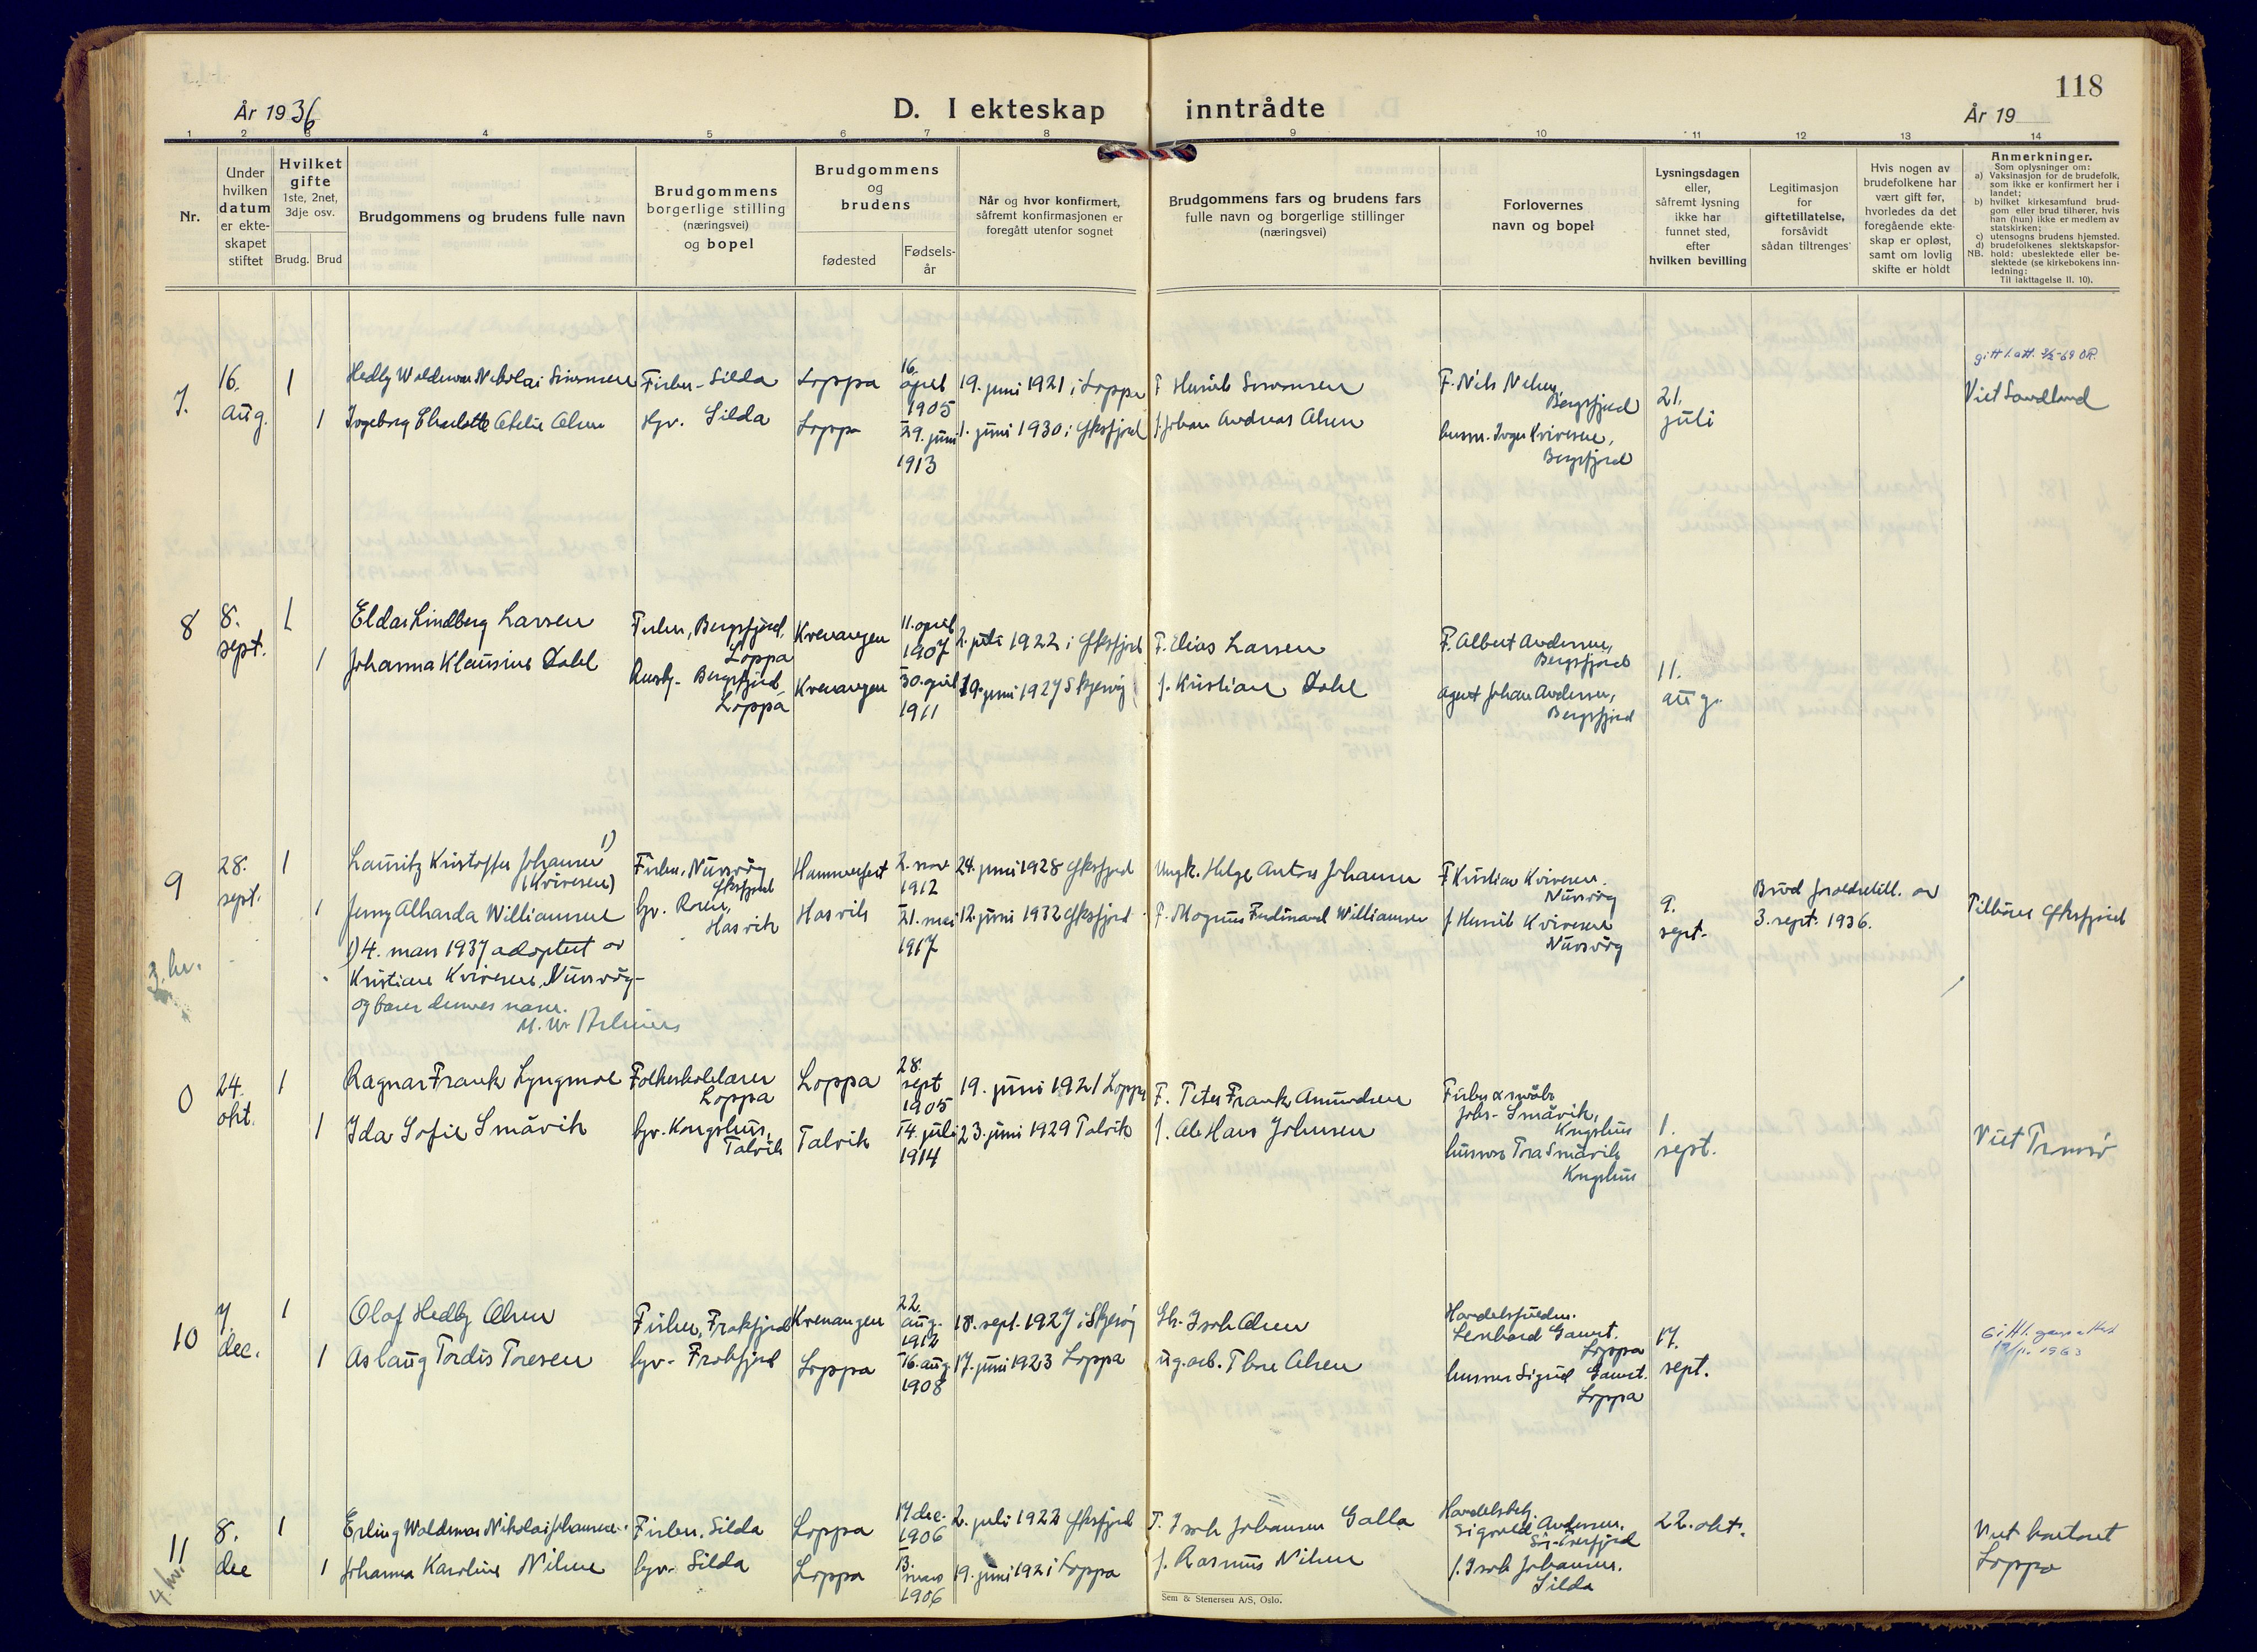 118
År 1936
D. I ekteskap inntrådte
År 19
1 2 3 4 5 6 7 8 9 10 11 12 13 14
Nr.
Under
hvilken
datum
er ekte-
skapet
stiftet
Hvilket
gifte
1ste, 2net,
3dje osv.
Brudg. Brud
Brudgommens og brudens fulle navn
Brudgommens
borgerlige stilling
(næringsvei)
og bopel
Brudgommens
og
brudens
fødested
Fødsels-
år
Når og hvor konfirmert,
såfremt konfirmasjonen er
foregått utenfor sognet
Brudgommens fars og brudens fars
fulle navn og borgerlige stillinger
(næringsvei)
Forlovernes
navn og bopel
Lysningsdagen
eller,
såfremt lysning
ikke har
funnet sted,
efter
hvilken bevilling
Legitimasjon
for
giftetillatelse,
forsåvidt
sådan tiltrenges
Hvis nogen av
brudefolkene har
vært gift før,
hvorledes da det
foregående ekte-
skap er opløst,
samt om lovlig
skifte er holdt
Anmerkninger.
Som oplysninger om:
a) Vaksinasjon for de brudefolk,
som ikke er konfirmert her i
landet;
b) hvilket kirkesamfund brud-
gom eller brud tilhører, hvis
han (hun) ikke er medlem av
statskirken;
c) utensogns brudens hjemsted.
d) brudefolkenes slektskapsfor-
hold: ubeslektede eller be-
slektede (se kirkebokens inn-
ledning:
NB. Til iakttagelse II. 10).
7.
16.
aug.
1
1
Hedly Waldemar Nikolai Simonsen
Ingeborg Charlotte Olsen
Fisker - Silda
Hjv. Silda
Loppa
Loppa
16.
april
1905
29. juni
1913
19. juni 1921 i Loppa
1. juni 1930 i Øksfjord
F. Henrik Simonsen
f. Johan Andreas Olsen
F. Nils Nilsen
Bergsfjord
husm. Inga Kvivesen,
Bergsfjord
21.
juli
Viet Sandland
8
8.
sept.
1
1
Eldar Lindberg Larsen
Johanna Klausine Dahl
Fisker, Bergsfjord,
Loppa
Bergsfjord
Loppa
Kvenangen
Kvenangen
11. april
1907
30. april
1911
2. juli 1922 i Øksfjord
19. juni 1927 Skjervøy
F. Elias Larsen
f. Kristian Dahl
F. Albert Andersen,
Bergsfjord
agent Johan Andersen,
Bergsfjord
11.
aug.
9
28.
sept.
1
1
Lauritz Kristoffer Johansen 1)
(Kvivesen)
Jenny Alharda Williamsen
1) 4. mars 1937 adoptert av
Kristian Kvivesen, Nuvsvåg -
og bærer dennes navn.
Fisker, Nuvsvåg
Øksfjord
hjv.
Hasvik
Hammerfest
Hasvik
2. nov.
1912
21. mai
1917
24. juni 1928 Øksfjord
12. juni 1932 Øksfjord
Ungk. Helge Anton Johansen
f. Magnus Ferdinand Williamsen
F. Kristian Kvivesen
Nuvsvåg
f. Henrik Kvivesen
Nuvsvåg
9.
sept.
Brud foreldretill. av
3. sept. 1936.
Tilhører Øksfjord
3. kv.
0
24.
okt.
1
1
Ragnar Frank Lyngmoe
Ida Sofie Småvik
Folkeskolelærer
Loppa
hjv. Kongshus,
Talvik
Loppa
Talvik
28.
sept
1905
14. juli
1914
19. juni 1921 Loppa
23. juni 1929 Talvik
F. Peter Frank Amundsen
f. Ole Hans Johnsen
Fisker & småbr.
Johs. Småvik,
Kongshus
husmor Tora Småvik
Kongshus
1.
sept.
Viet Tromsø
10
7.
dec.
1
1
Olaf Hedly Olsen
Aslaug Tordis Toresen
Fisker, Frakfjord
hjv. Frakfjord
Kvenangen
Loppa
22.
aug.
1912
16. aug.
1908
18. sept. 1927 i Skjervøy
17. juni 1923 Loppa
Gb. Isak Olsen
ug. arb. Thore Olsen
Handelsfullm.
Lenhard
Loppa
husmor Sigrid
Loppa
17.
sept.
1963
11
8.
dec
1
1
Erling Waldemar Nikolai Johansen
Johanna Karoline Nilsen
Fisker, Silda
hjv. Silda
Loppa
Loppa
17 dec.
1906
13.
mars
1906
2. juli 1922 Øksfjord
19. juni 1921 Loppa
F. Isak Johansen Galla
f. Rasmus Nilsen
Handelsbetj.
Sigvald Andersen,
f. Isak Johansen.
Silda
22. okt.
Viet kontoret
Loppa
4. kv.
Sem & Stenersen A/S, Oslo.